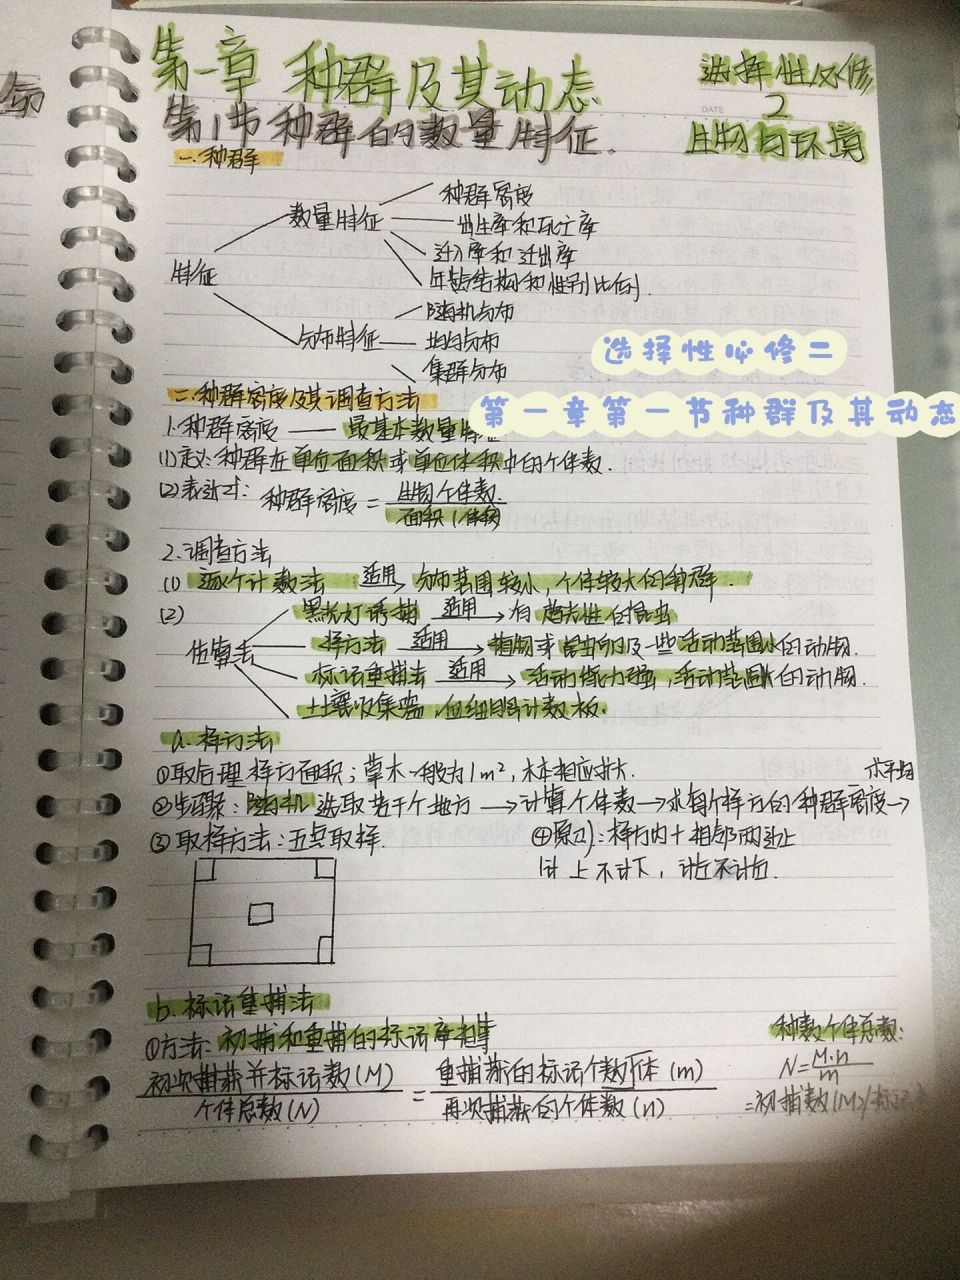 命
第一章 种群及其动态
选择性必修
2
DATE
生物与环境
第1节种群的数量特征.
一.种群
特征
数量特征
种群密度
出生率和死亡率
迁入率和迁出率
年龄结构和性别比例.
分布特征
随机分布
均匀分布
集群分布
选择性必修二
第一章第一节种群及其动态
二.种群密度及其调查方法
1.种群密度 —— 最基本数量特征
(1)定义:种群在单位面积或单位体积中的个体数.
(2)表达式: 种群密度 = 生物个体数 / 面积(体积)
2.调查方法
(1) 逐个计数法 适用→ 分布范围较小,个体较大的种群.
(2)
估算法
黑光灯诱捕 适用→ 有趋光性的昆虫
样方法 适用→ 植物或昆虫卵及一些活动范围小的动物.
标记重捕法 适用→ 活动能力强,活动范围大的动物.
土壤收集器,血细胞计数板.
a.样方法
①取合理样方面积;草本一般为1m²,木本相应扩大.
②步骤:随机选取若干个地方→计算个体数→求每个样方的种群密度→求平均
③取样方法:五点取样.
④原则:样方内+相邻两边上
计上不计下,计左不计右.
b.标记重捕法
①方法:初捕和重捕的标记率相等
初次捕获并标记数(M) / 个体总数(N) = 重捕获的标记个数体(m) / 再次捕获的个体数(n)
种数个体总数:
N=M·n/m
=初捕数(M)